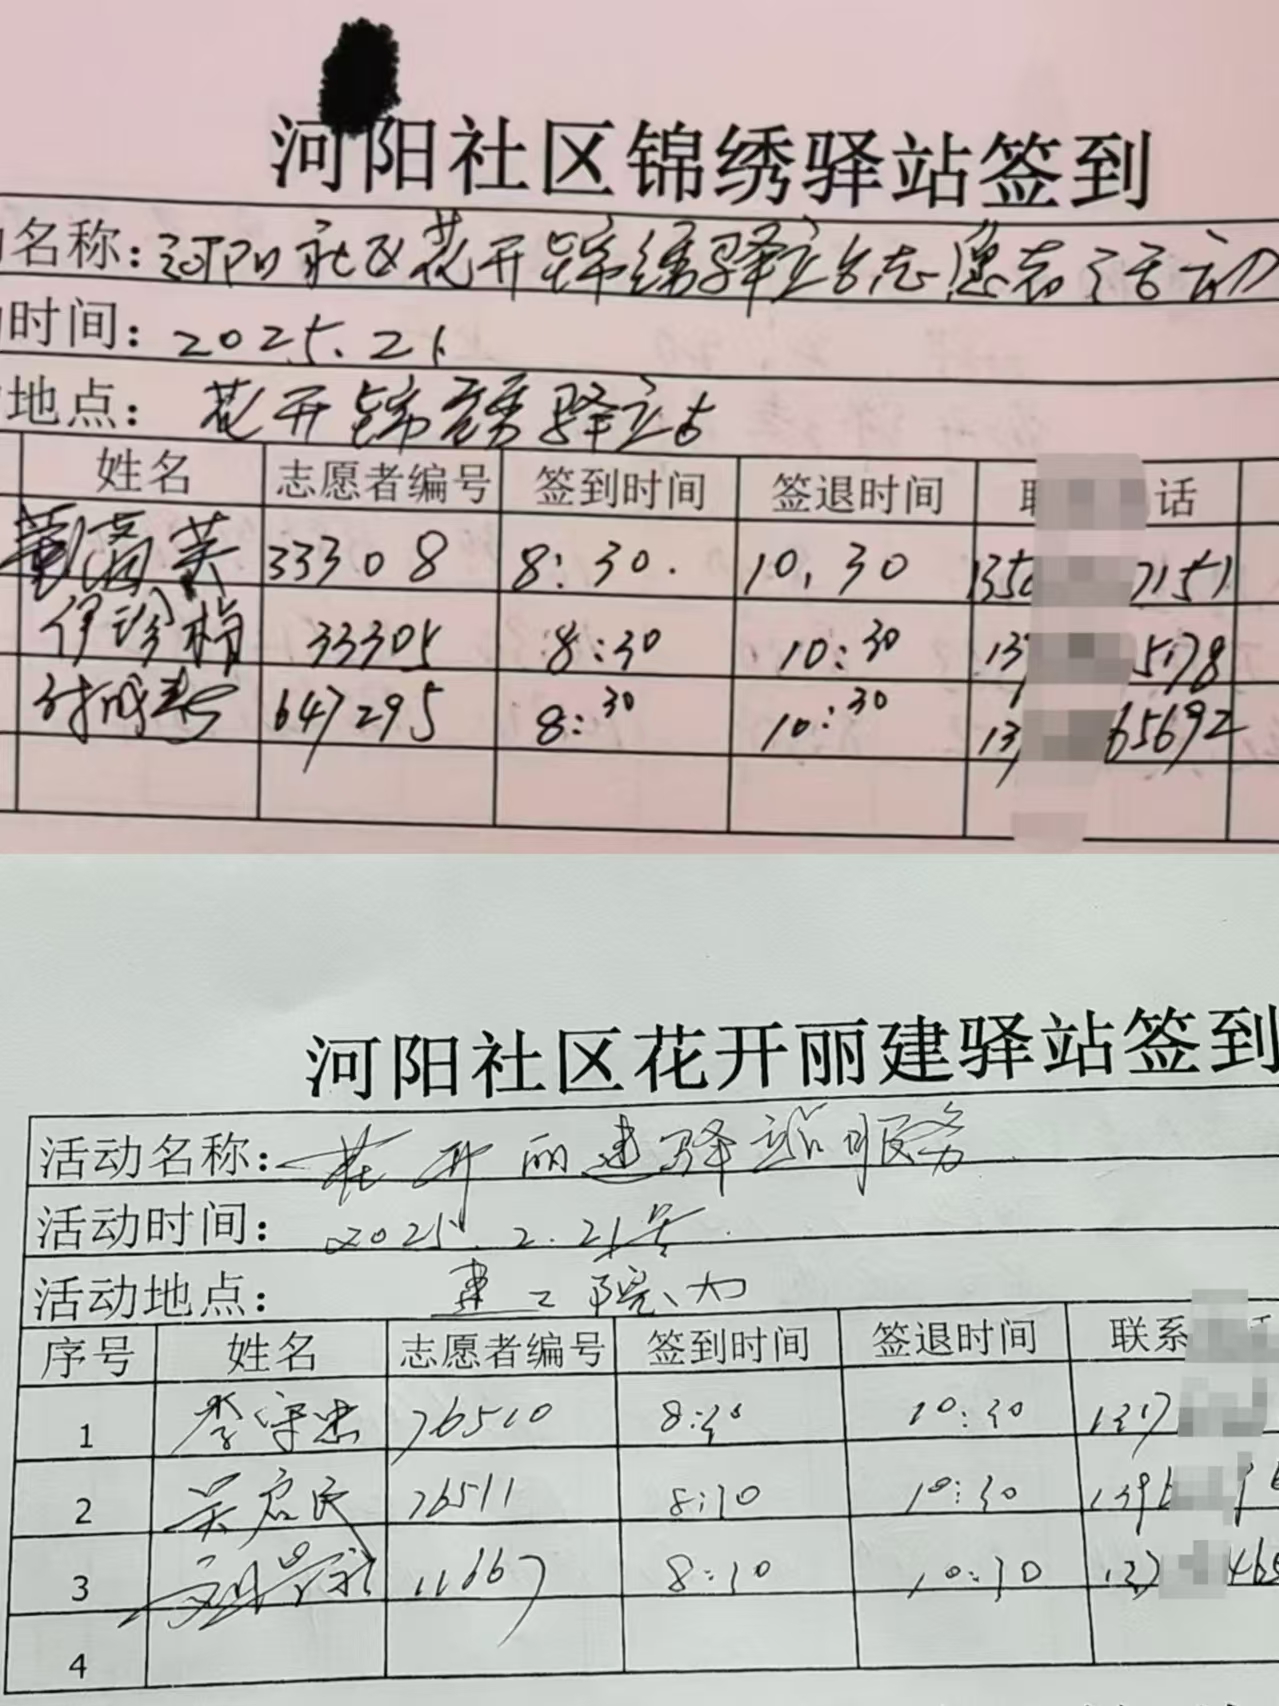 河阳社区锦绣驿站签到
名称:河阳社区花开锦绣驿站志愿者活动
时间: 2025.21
地点: 花开锦绣驿站
姓名 志愿者编号 签到时间 签退时间 话
33308 8:30. 10.30 135 7151
伊珍梅 33305 8:30 10:30 13 5178
647295 8:30 10:30 13 65692
河阳社区花开丽建驿站签到
活动名称: 花开丽建驿站服务
活动时间: 2025.2.21号
活动地点: 建工院内
序号 姓名 志愿者编号 签到时间 签退时间 联系
1 李守忠 76510 8:30 10:30 1317
2 吴启民 76511 8:30 10:30 1396
3 11667 8:30 10:30 137 465
4